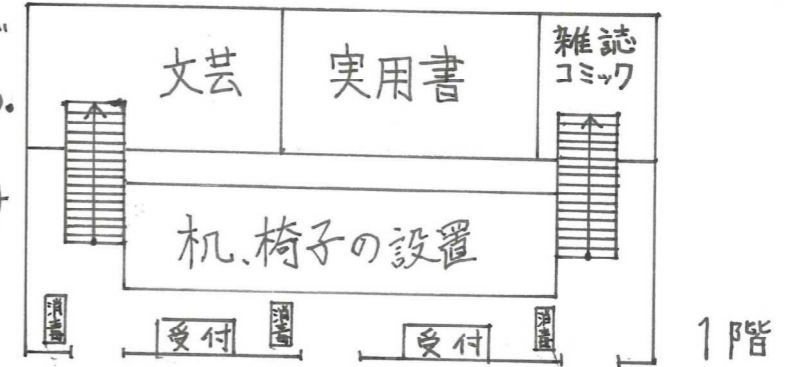 文芸
実用書
雑誌
コミック
机、椅子の設置
消毒
受付
消毒
受付
消毒
1階